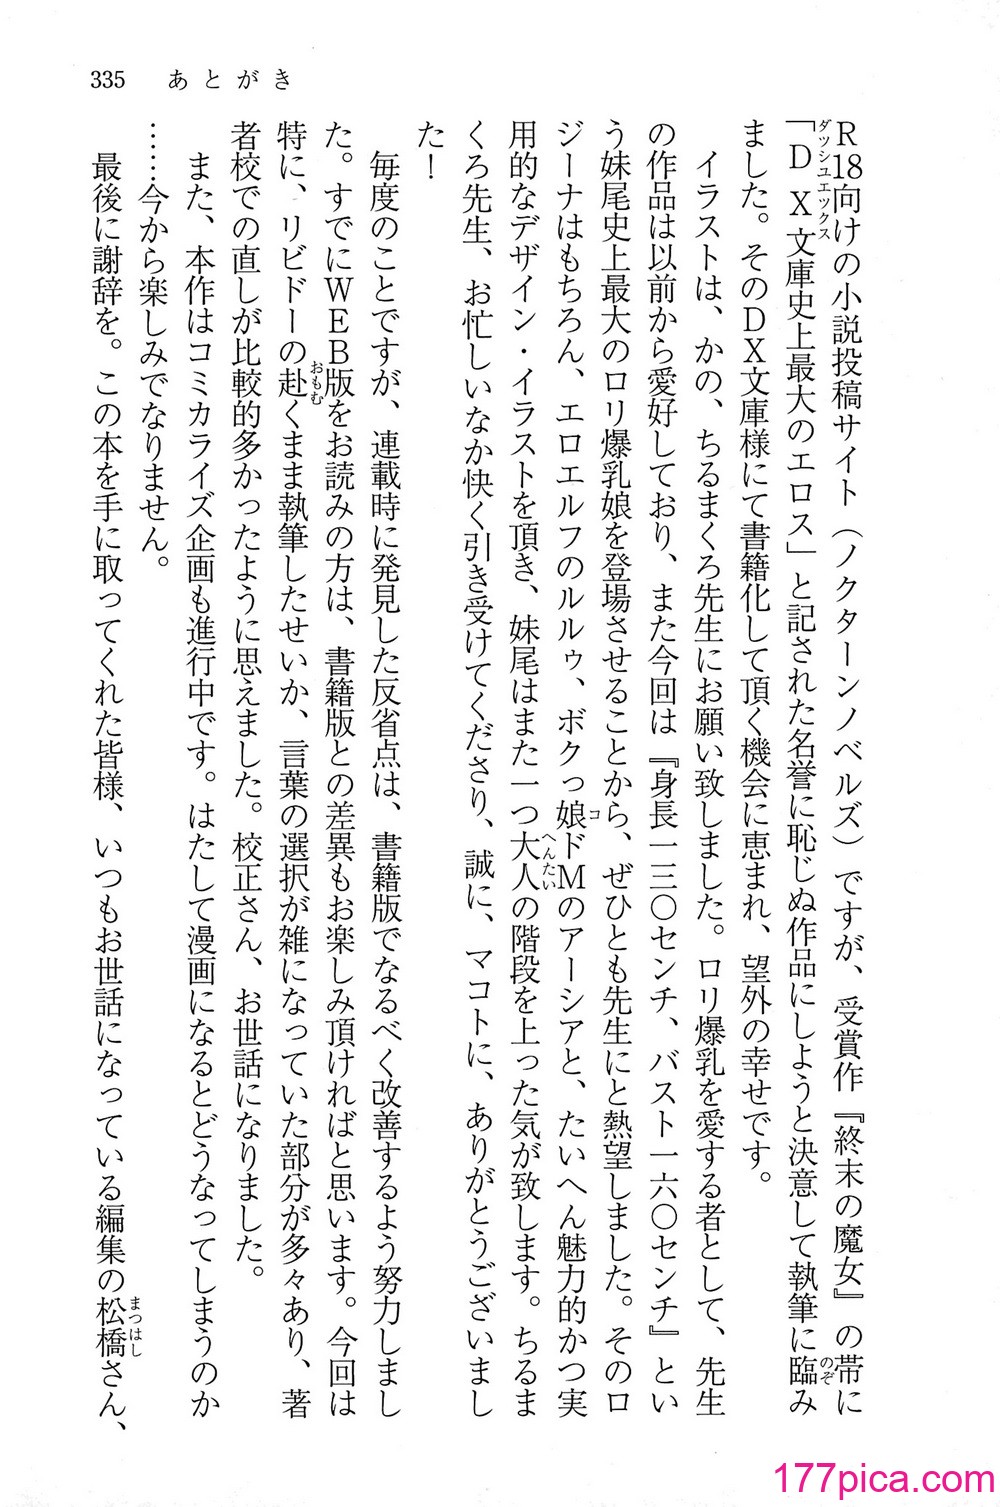 335 あとがき
R18向けの小説投稿サイト（ノクターンノベルズ）ですが、受賞作『終末の魔女』の帯に
「DX文庫史上最大のエロス」と記された名誉に恥じぬ作品にしようと決意して執筆に臨み
ダッシュエックス
のぞ
ました。そのDX文庫様にて書籍化して頂く機会に恵まれ、望外の幸せです。
イラストは、かの、ちるまくろ先生にお願い致しました。ロリ爆乳を愛する者として、先生
の作品は以前から愛好しており、また今回は『身長一三〇センチ、バスト一六〇センチ』とい
う妹尾史上最大のロリ爆乳娘を登場させることから、ぜひとも先生にと熱望しました。そのロ
ジーナはもちろん、エロエルフのルルゥ、ボクっ娘ドMのアーシアと、たいへん魅力的かつ実
コ
用的なデザイン・イラストを頂き、妹尾はまた一つ大人の階段を上った気が致します。ちるま
へんたい
くろ先生、お忙しいなか快く引き受けてくださり、誠に、マコトに、ありがとうございまし
た！
毎度のことですが、連載時に発見した反省点は、書籍版でなるべく改善するよう努力しまし
た。すでにWEB版をお読みの方は、書籍版との差異もお楽しみ頂ければと思います。今回は
特に、リビドーの赴くまま執筆したせいか、言葉の選択が雑になっていた部分が多々あり、著
おもむ
者校での直しが比較的多かったように思えました。校正さん、お世話になりました。
また、本作はコミカライズ企画も進行中です。はたして漫画になるとどうなってしまうのか
……今から楽しみでなりません。
最後に謝辞を。この本を手に取ってくれた皆様、いつもお世話になっている編集の松橋さん、
まつはし
177pica.com